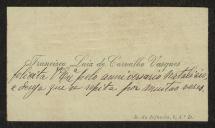 Francisco Luiz de Carvalho Vasques
felicita V. Exª pelo anniversario natalicio,
e deseja que se repita por muitos anos.
R. da Alfandega, 1, 4.º D.